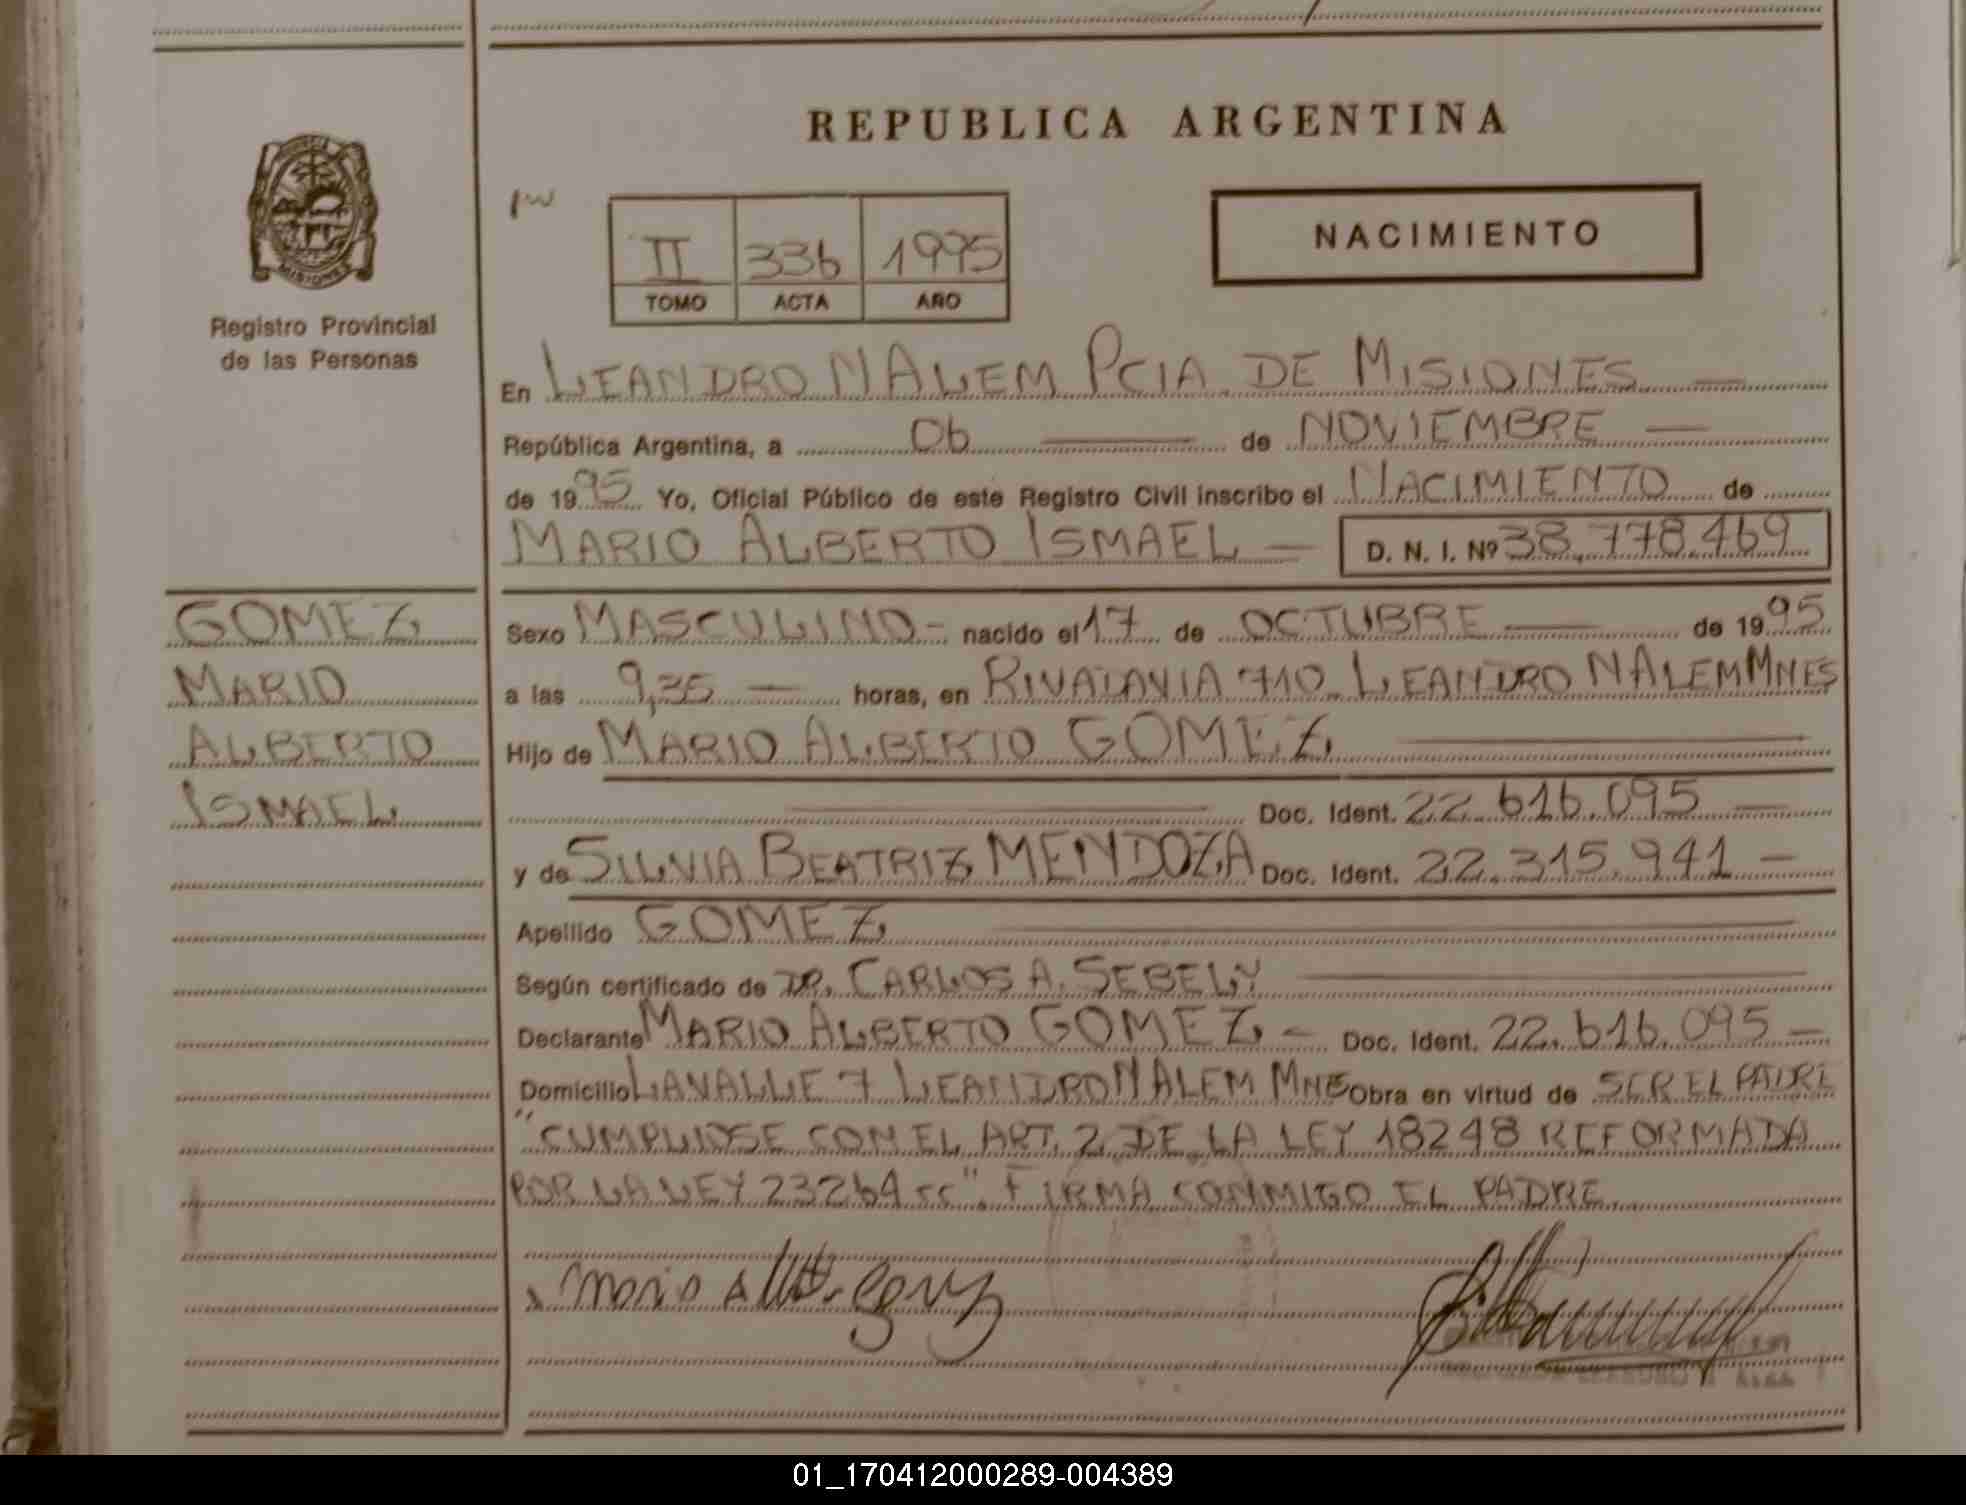 REPUBLICA ARGENTINA
MISIONES
Registro Provincial
de las Personas
II 336 1995
TOMO ACTA AÑO
NACIMIENTO
En LEANDRO N ALEM PCIA. DE MISIONES
República Argentina, a 06 de NOVIEMBRE
de 1995 Yo, Oficial Público de este Registro Civil inscribo el NACIMIENTO de
MARIO ALBERTO ISMAEL D. N. I. Nº 38.778.469
GOMEZ
MARIO
ALBERTO
ISMAEL
Sexo MASCULINO - nacido el 17 de OCTUBRE de 1995
a las 9,35 horas, en RIVADAVIA 710 LEANDRO N ALEM MNES
Hijo de MARIO ALBERTO GOMEZ
Doc. Ident. 22.616.095
y de SILVIA BEATRIZ MENDOZA Doc. Ident. 22.315.941
Apellido GOMEZ
Según certificado de DR. CARLOS A. SEBELY
Declarante MARIO ALBERTO GOMEZ Doc. Ident. 22.616.095
Domicilio LAVALLE 7 LEANDRO N ALEM MNE Obra en virtud de SER EL PADRE
"CUMPLIOSE CON EL ART. 2 DE LA LEY 18248 REFORMADA
POR LA LEY 23264 ". FIRMA CONMIGO EL PADRE
01_170412000289-004389